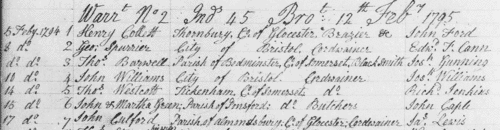 Warrt. No 2 Ind 45 Brot. 12th Feby 1795
5 Feby. 1794 1 Henry Collett Thornbury, C. of Glocester Brazier &c John Ford
8 do. 2 Geo: Spurrier City of Bristol Cordwainer Edwd. T. Cann
do do 3 Thos. Barwell Parish of Bedminster C. of Somerset, Black Smith Jos: Gunning
10 do. 4 John Williams City of Bristol. Cordwainer Jos: Williams
14 do 5 Thos. Westcott Tickenham C. of Somerset do Richd. Jenkins
15 do 6 John & Martha Green; Parish of Butchers John Cable
17 do, 7 John Parish of Almondsbury C. of Glocester; Cordwainer Jas. Lewis